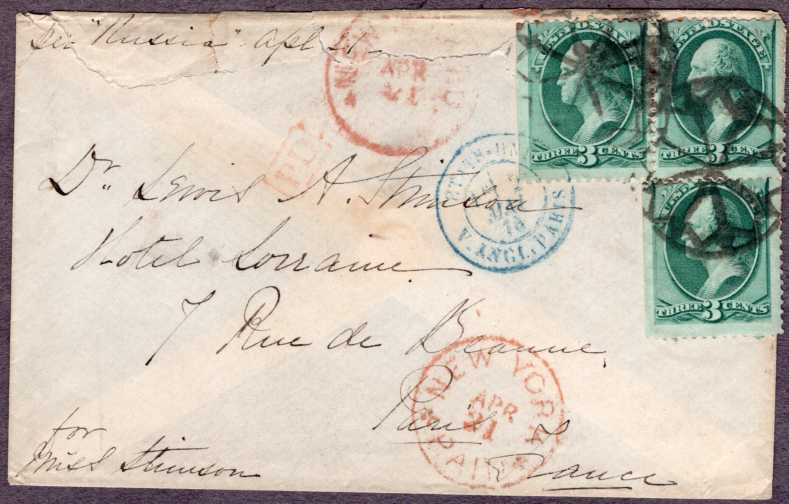 Per "Russia" Apl 21
Dr Lewis A. Stimson
Hotel Lorraine
7 Rue de Beaune
Paris
France
for
Miss Stimson
APR
21
NEW YORK
APR
21
PAID
V. ANGL. PARIS
76
THREE 3 CENTS
THREE 3 CENTS
THREE 3 CENTS